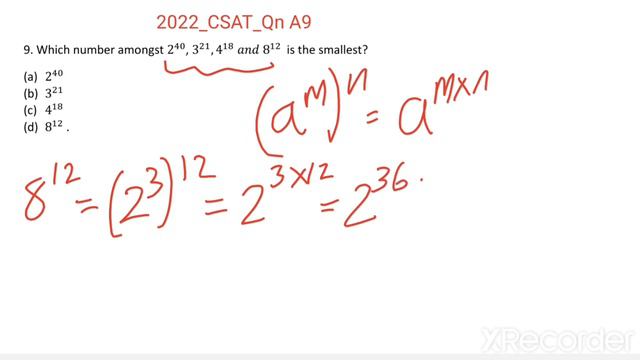 2022_CSAT_Qn A9
9. Which number amongst 2⁴⁰, 3²¹, 4¹⁸ and 8¹² is the smallest?
(a) 2⁴⁰
(b) 3²¹
(c) 4¹⁸
(d) 8¹² .
(aᵐ)ⁿ = aᵐˣⁿ
8¹² = (2³)¹² = 2³ˣ¹² = 2³⁶ .
XRecorder